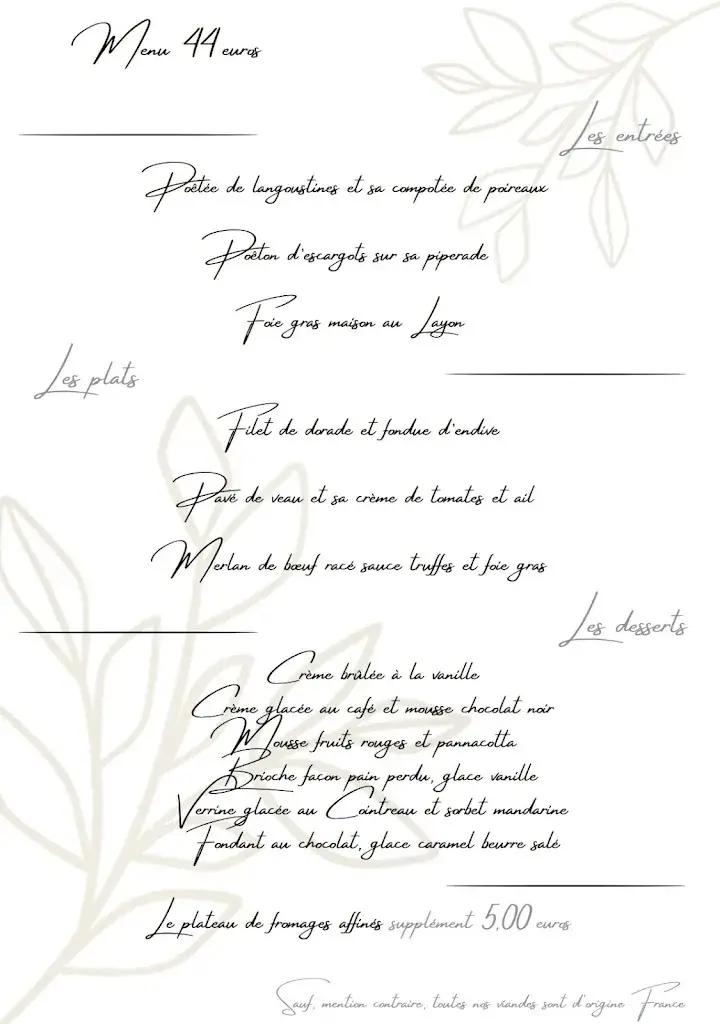 Menu 44 euros
Les entrées
Poêtée de langoustines et sa compotée de poireaux
Poêton d'escargots sur sa piperade
Foie gras maison au Layon
Les plats
Filet de dorade et fondue d'endive
Pavé de veau et sa crème de tomates et ail
Merlan de bœuf racé sauce truffes et foie gras
Les desserts
Crème brûlée à la vanille
Crème glacée au café et mousse chocolat noir
Mousse fruits rouges et pannacotta
Brioche façon pain perdu, glace vanille
Verrine glacée au Cointreau et sorbet mandarine
Fondant au chocolat, glace caramel beurre salé
Le plateau de fromages affinés supplément 5,00 euros
Sauf, mention contraire, toutes nos viandes sont d'origine France